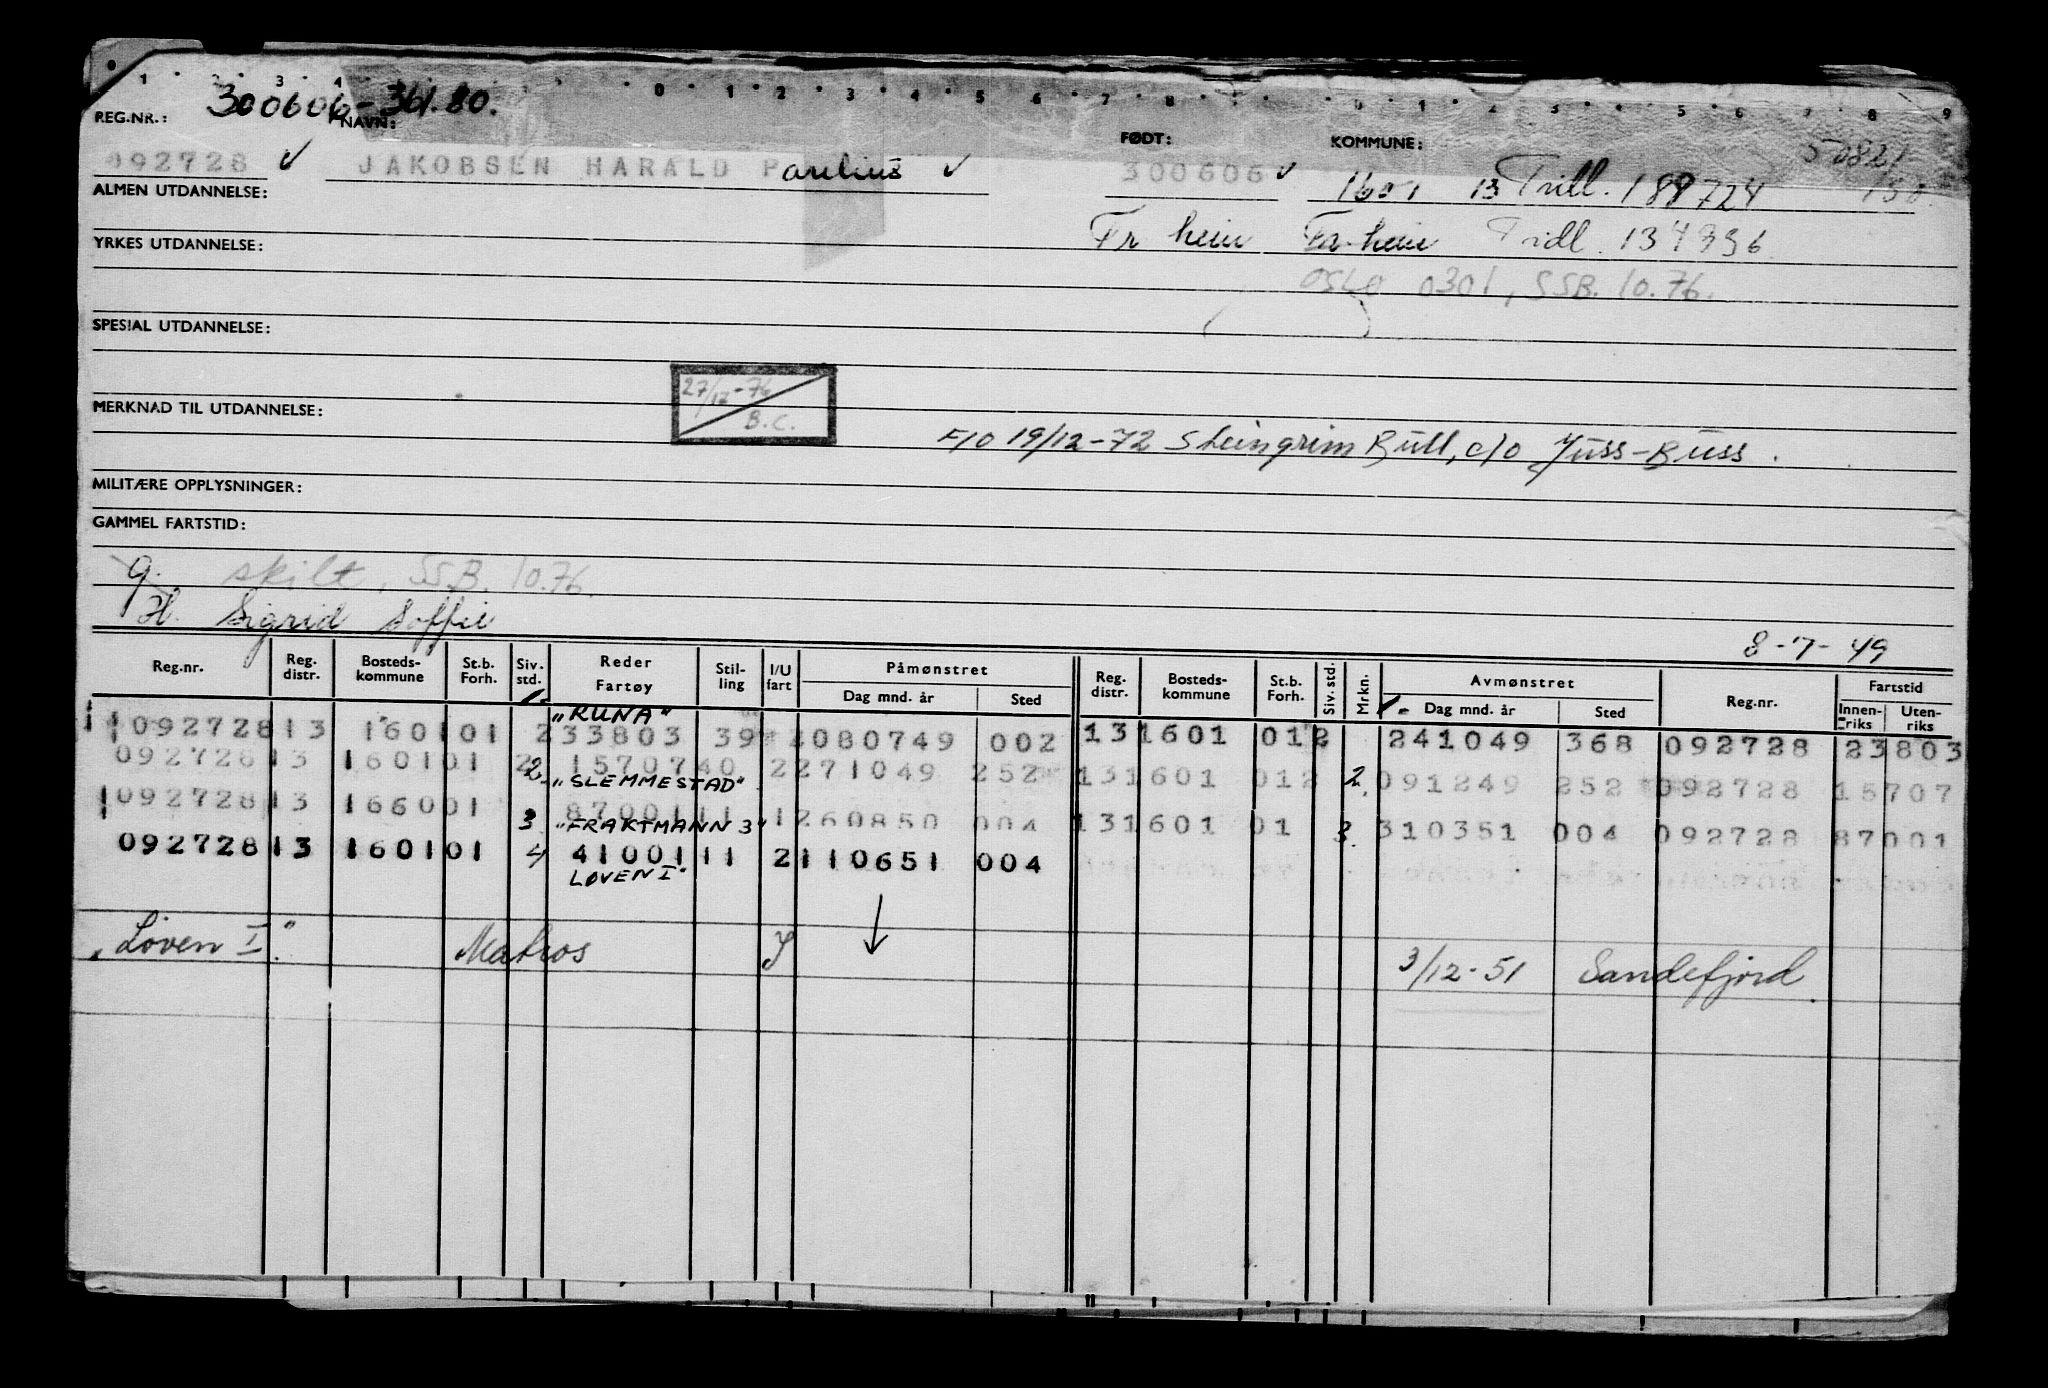 1 2 3 4 0 1 2 3 4 5 6 7 8 0 1 2 3 4 5 6 7 8 9
REG.NR.: 300606-361.80. NAVN: FØDT: KOMMUNE: 50821
092728 ✓ JAKOBSEN HARALD Parelius ✓ 300606 ✓ 1601 13 Tridl. 188724 150.
ALMEN UTDANNELSE:
YRKES UTDANNELSE: Tridl. 134336
OSLO 0301, SSB. 10.76.
SPESIAL UTDANNELSE:
27/12-76
B.C.
MERKNAD TIL UTDANNELSE:
F/O 19/12-72 Steingrim Bull, c/o Juss-Buss.
MILITÆRE OPPLYSNINGER:
GAMMEL FARTSTID:
g. skilt, SSB. 10.76.
H. Sigrid Soffie
8-7-49
Reg.nr. Reg. distr. Bosteds-kommune St.b. Forh. Siv. std. Reder Fartøy Stil-ling I/U fart Påmønstret Dag mnd. år Sted Reg. distr. Bosteds-kommune St.b. Forh. Siv. std. Mrkn. Avmønstret Dag mnd. år Sted Reg.nr. Fartstid Innen-riks Uten-riks
1. „RUNA" 1.
092728 13 1601 01 2 33803 39 2 080749 002 13 1601 01 2 241049 368 092728 23803
092728 13 1601 01 2 2. 15707 40 2 271049 252 13 1601 01 2 2. 091249 252 092728 15707
„SLEMMESTAD"
092728 13 1660 01 87001 11 1 260850 004 13 1601 01 3. 310351 004 092728 87001
3 „FRAKTMANN 3"
092728 13 1601 01 4 41001 11 2 110651 004
LØVEN I"
„Løven I." Matros I ↓ 3/12-51 Sandefjord.